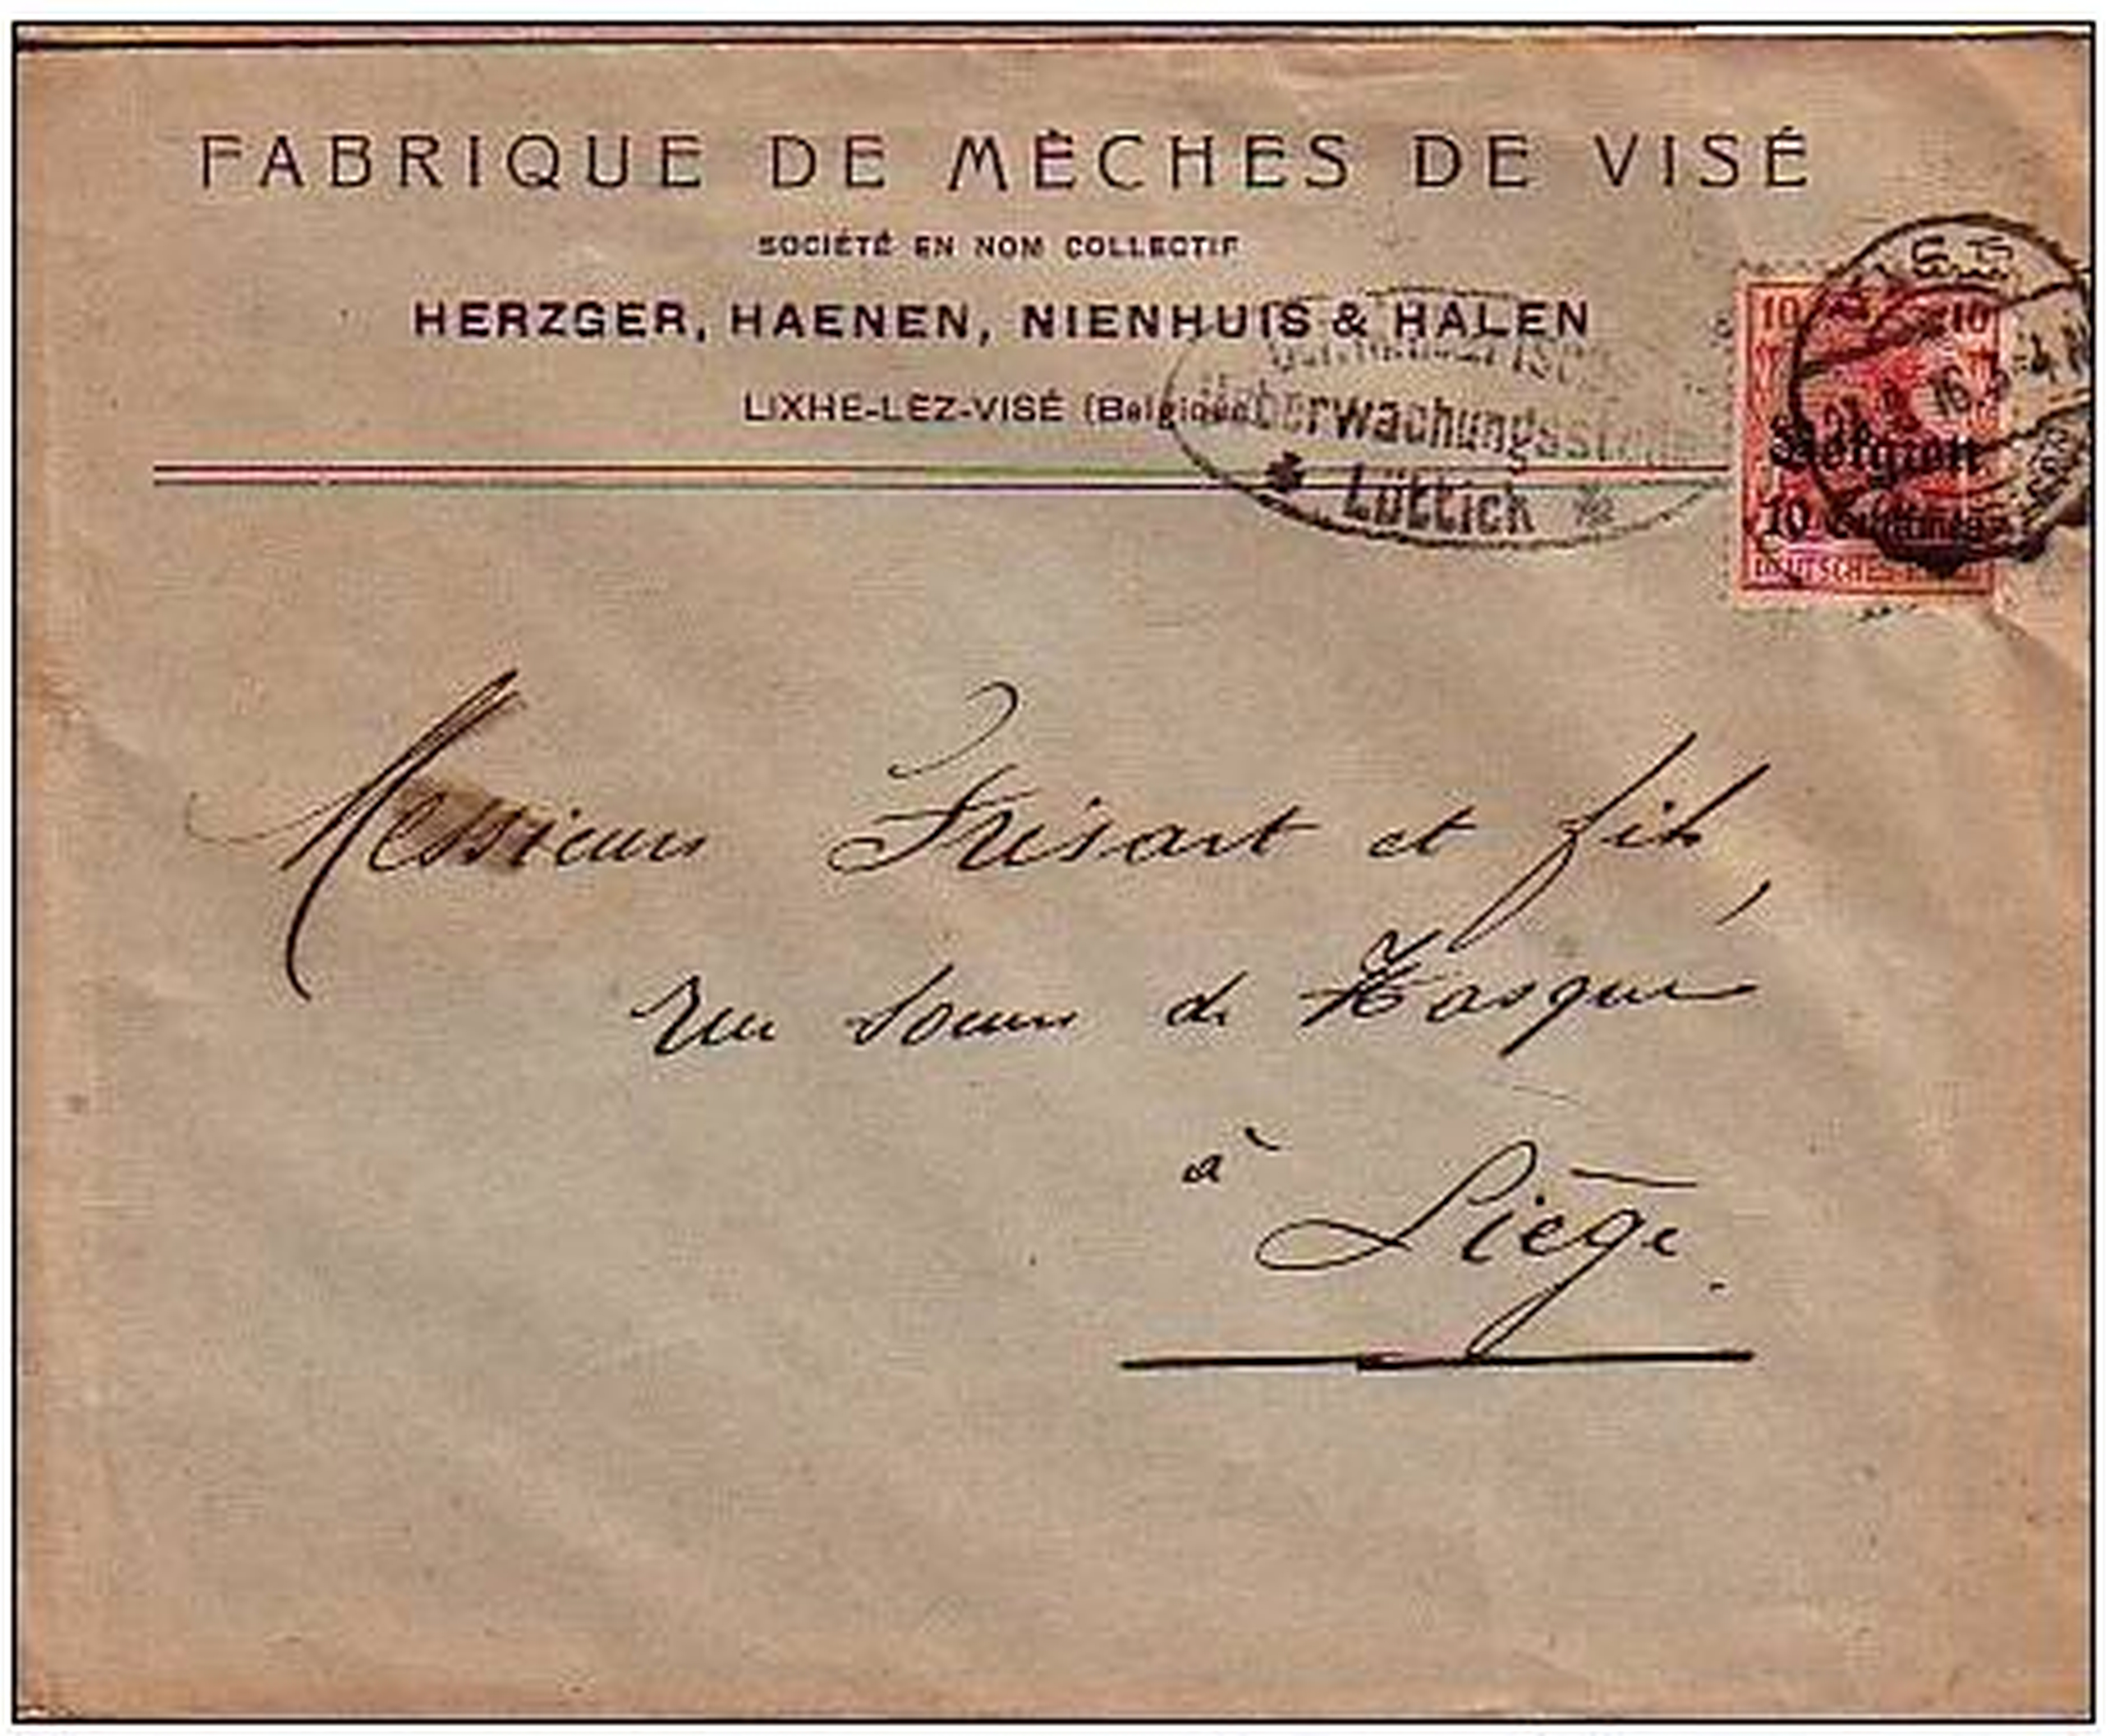 FABRIQUE DE MÈCHES DE VISÉ
SOCIÉTÉ EN NOM COLLECTIF
HERZGER, HAENEN, NIENHUIS & HALEN
LIXHE-LEZ-VISÉ (Belgique)
Überwachungsstelle
* Lüttich *
10 10
Belgien
10 Centimes
DEUTSCHES REICH
Messieurs Frésart et fils,
Rue Soeurs de Hasque
à Liège.